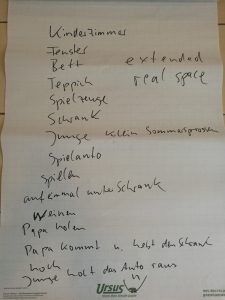 Kinderzimmer
Fenster
Bett
extended
Teppich
real space
Spielzeuge
Schrank
Junge klein Sommersprossen
Spielauto
spielen
auf einmal unter Schrank
weinen
Papa holen
Papa kommt u. hebt den Schrank
hoch
Junge holt das Auto raus
Ursus